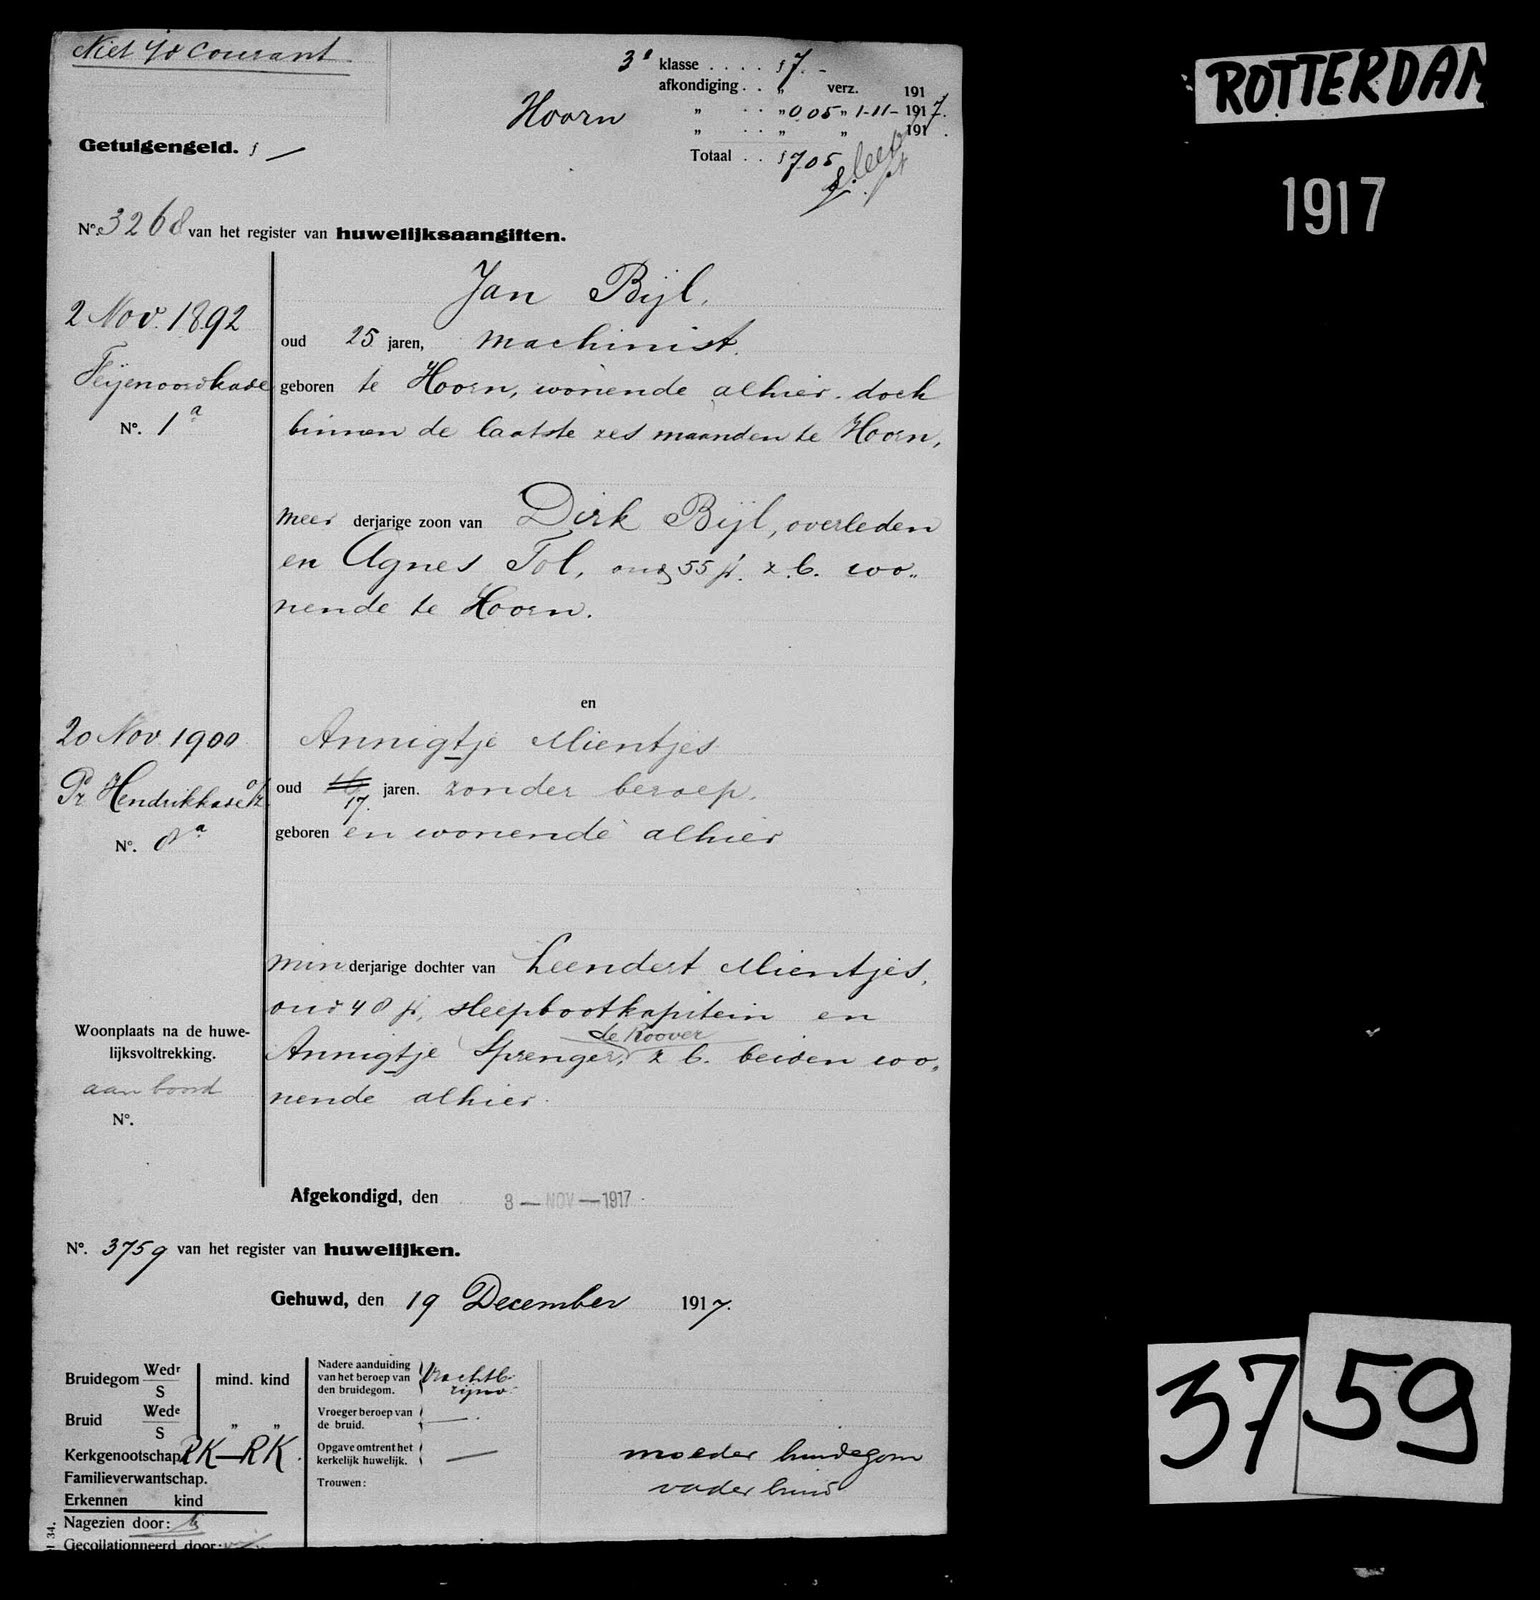 Niet in courant
3e klasse . . . . f 7.-
afkondiging . . „ verz. 191
Hoorn „ . . „ 0.05 „ 1-11- 1917.
„ . . „ „ 191 .
Getuigengeld. f —
Totaal . . f 7.05
No. 3268 van het register van huwelijksaangiften.
Jan Bijl,
2 Nov. 1892
oud 25 jaren, machinist.
Feijenoordkade
geboren te Hoorn, wonende alhier. doch
No. 1a
binnen de laatste zes maanden te Hoorn,
meerderjarige zoon van Dirk Bijl, overleden
en Agnes Tol, oud 55 jr. z.b. woo„
nende te Hoorn.
en
20 Nov 1900
Annigtje Mientjes
Pr Hendrikkade
oud 16 17. jaren. zonder beroep.
No. 8a
geboren en wonende alhier
minderjarige dochter van Leendert Mientjes,
oud 48 jr, sleepbootkapitein en
de Roover
Woonplaats na de huwe-
lijksvoltrekking.
Annigtje Sprenger, z b. beiden woo„
aan boord
nende alhier.
No.
Afgekondigd, den 8 — NOV — 1917
No. 3759 van het register van huwelijken.
Gehuwd, den 19 December 1917.
Bruidegom Wedr S mind. kind
Bruid Wede S „ „
Kerkgenootschap RK—RK.
Familieverwantschap.
Erkennen kind
Nagezien door:
Gecollationneerd door:
Nadere aanduiding
van het beroep van
den bruidegom.
Vroeger beroep van
de bruid. —
Opgave omtrent het
kerkelijk huwelijk. —
Trouwen:
moeder bruidegom
vader bruid
34.
ROTTERDAM
1917
3759